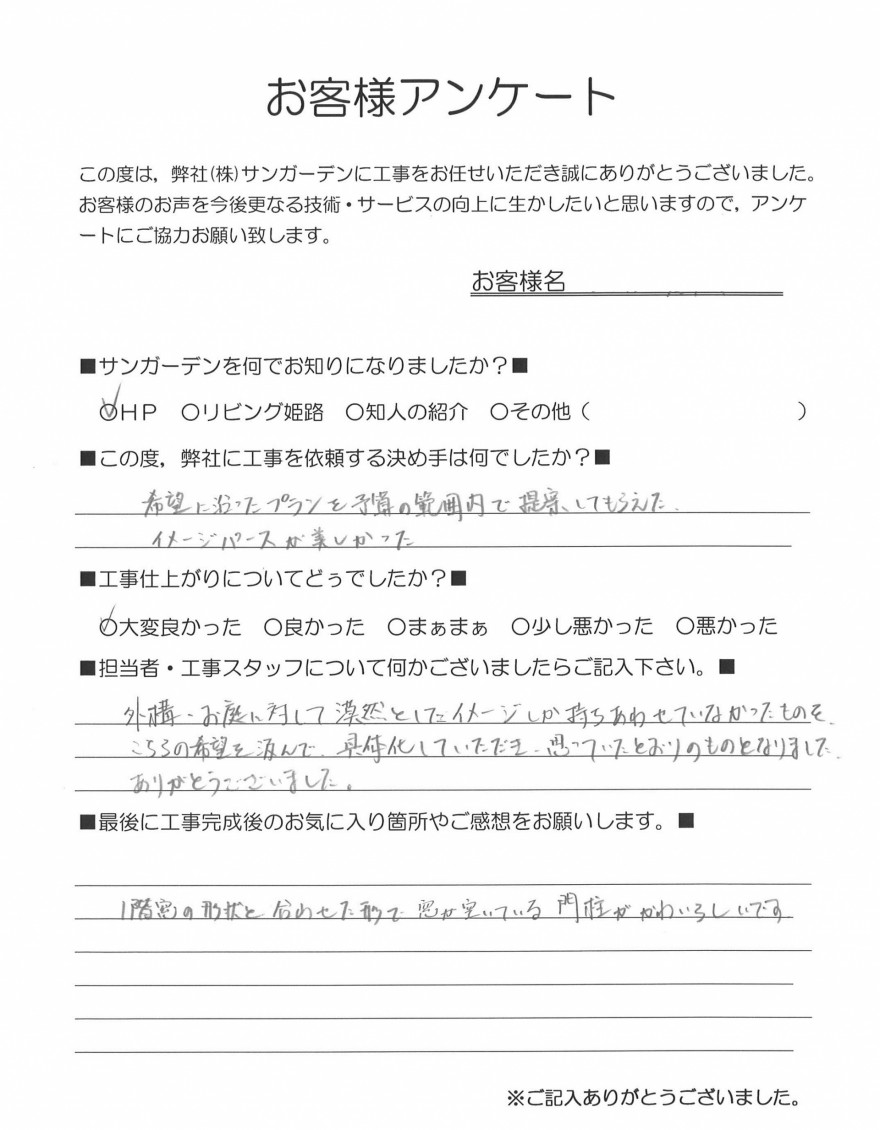 お客様アンケート
この度は，弊社(株)サンガーデンに工事をお任せいただき誠にありがとうございました。
お客様のお声を今後更なる技術・サービスの向上に生かしたいと思いますので，アンケ
ートにご協力お願い致します。
お客様名
■サンガーデンを何でお知りになりましたか？■
○HP　○リビング姫路　○知人の紹介　○その他（　　　　　　　　　　）
■この度，弊社に工事を依頼する決め手は何でしたか？■
希望に沿ったプランを予算の範囲内で提案してもらえた．
イメージパースが美しかった
■工事仕上がりについてどぅでしたか？■
○大変良かった　○良かった　○まぁまぁ　○少し悪かった　○悪かった
■担当者・工事スタッフについて何かございましたらご記入下さい。■
外構・お庭に対して漠然としたイメージしか持ちあわせていなかったものを、
こちらの希望を汲んで、具体化していただき、思っていたとおりのものとなりました．
ありがとうございました。
■最後に工事完成後のお気に入り箇所やご感想をお願いします。■
1階窓の形状と合わせた形で窓が空いている門柱がかわいらしいです
※ご記入ありがとうございました。